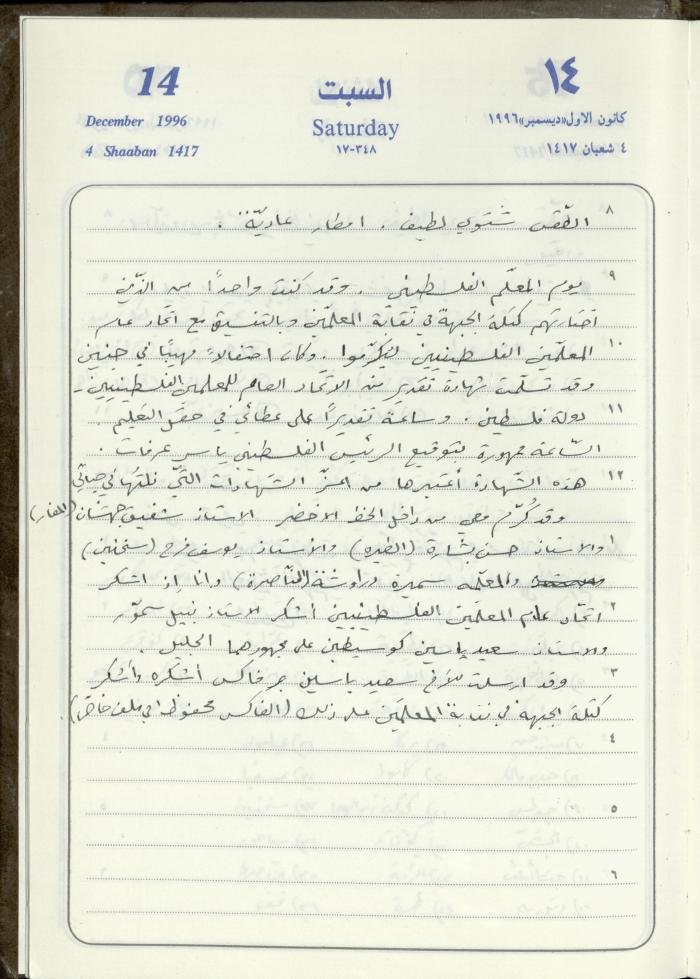 14 السبت ١٤
December 1996 Saturday كانون الاول «ديسمبر» ١٩٩٦
4 Shaaban 1417 ١٧-٣٤٨ ٤ شعبان ١٤١٧
٨ الطّقس شتوي لطيف . امطار عاديّة .
٩ يوم المعلّم الفلسطيني . وقد كنت واحدًا من الذين
اختارتهم كتلة الجبهة في نقابة المعلّمين وبالتنسيق مع اتحاد عام
١٠ المعلّمين الفلسطينيين ليُكرّموا . وكان احتفالاً مهيبًا في جنين
وقد تسلّمت شهادة تقدير من الاتحاد العام للمعلمين الفلسطينيين -
١١ دولة فلسطين . وساعة تقديرًا على عطائي في حقل التعليم .
السّاعة ممهورة بتوقيع الرئيس الفلسطيني ياسر عرفات .
١٢ هذه الشّهادة أعتبرها من أعزّ الشّهادات التي نلتها في حياتي
وقد كُرّم معي من داخل الخط الاخضر الاستاذ شفيق جهشان (المغار)
١ والاستاذ حسن بشارة (الطيره) والأستاذ يوسف فرح (سخنين)
والمعلّمه سميرة دراوشة (النّاصرة) وانا إذ اشكر
٢ اتحاد عام المعلّمين الفلسطينيين أشكر الاستاذ نبيل سمّور
والاستاذ سعيد ياسين كوسيطين على مجهودهما الجليل .
٣ وقد ارسلت للأخ سعيد ياسين عبر فاكس أشكره وأشكر
كتلة الجبهة في نقابة المعلّمين على ذلك (الفاكس محفوظ في ملف خاص) .
٤
٥
٦